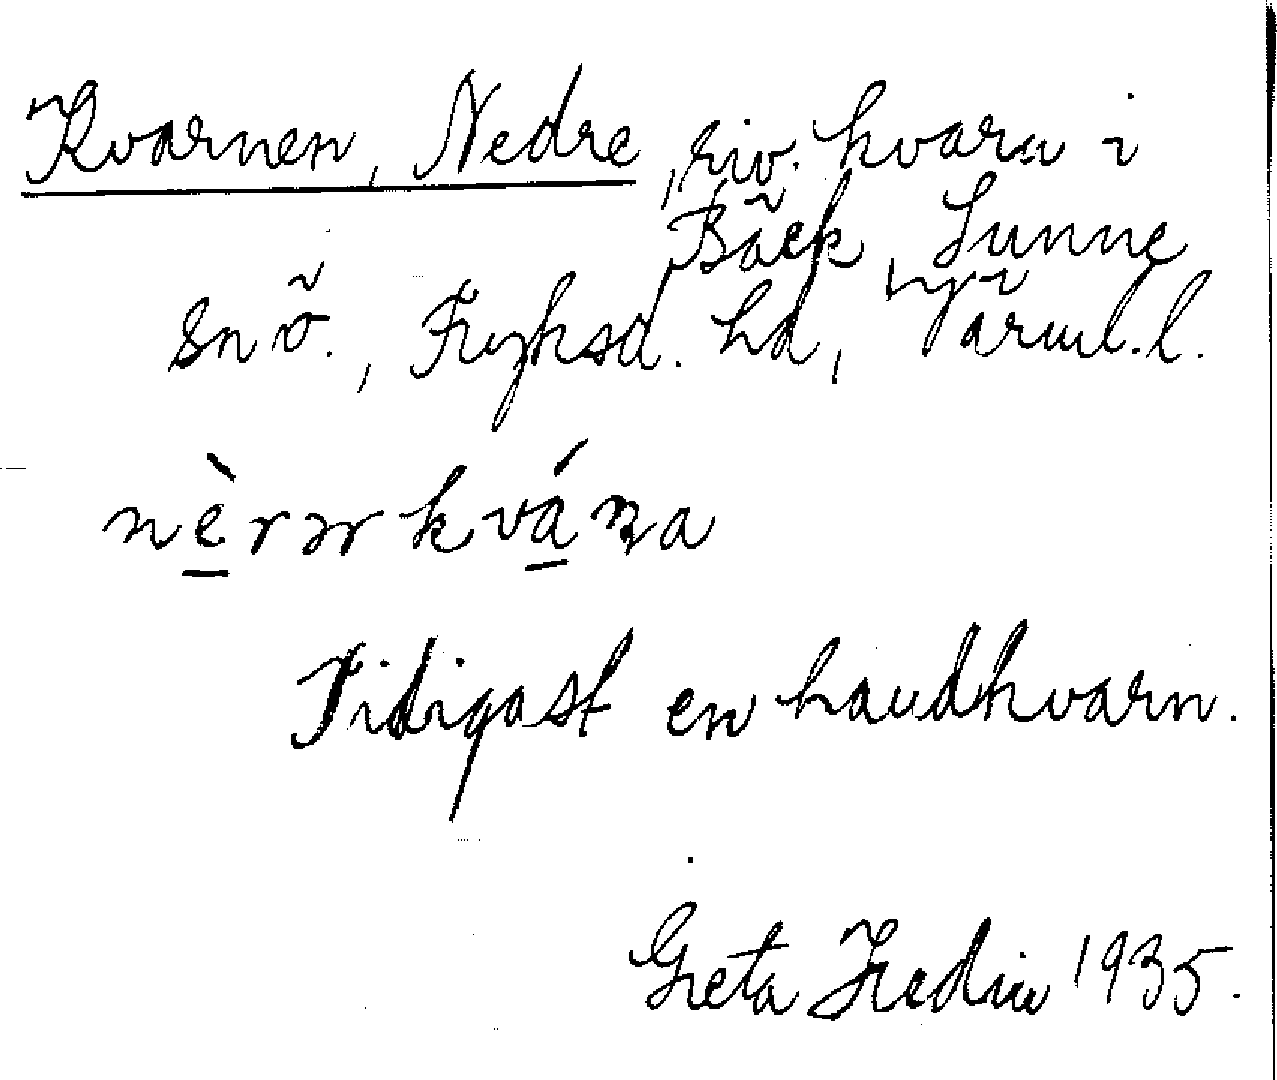 Kvarnen, Nedre, riv. kvarn i
Bäck, Sunne
snö., Fryksd. hd, Värml. l.
nèrərkváṇa
Tidigast en handkvarn.
Greta Hedin 1935.